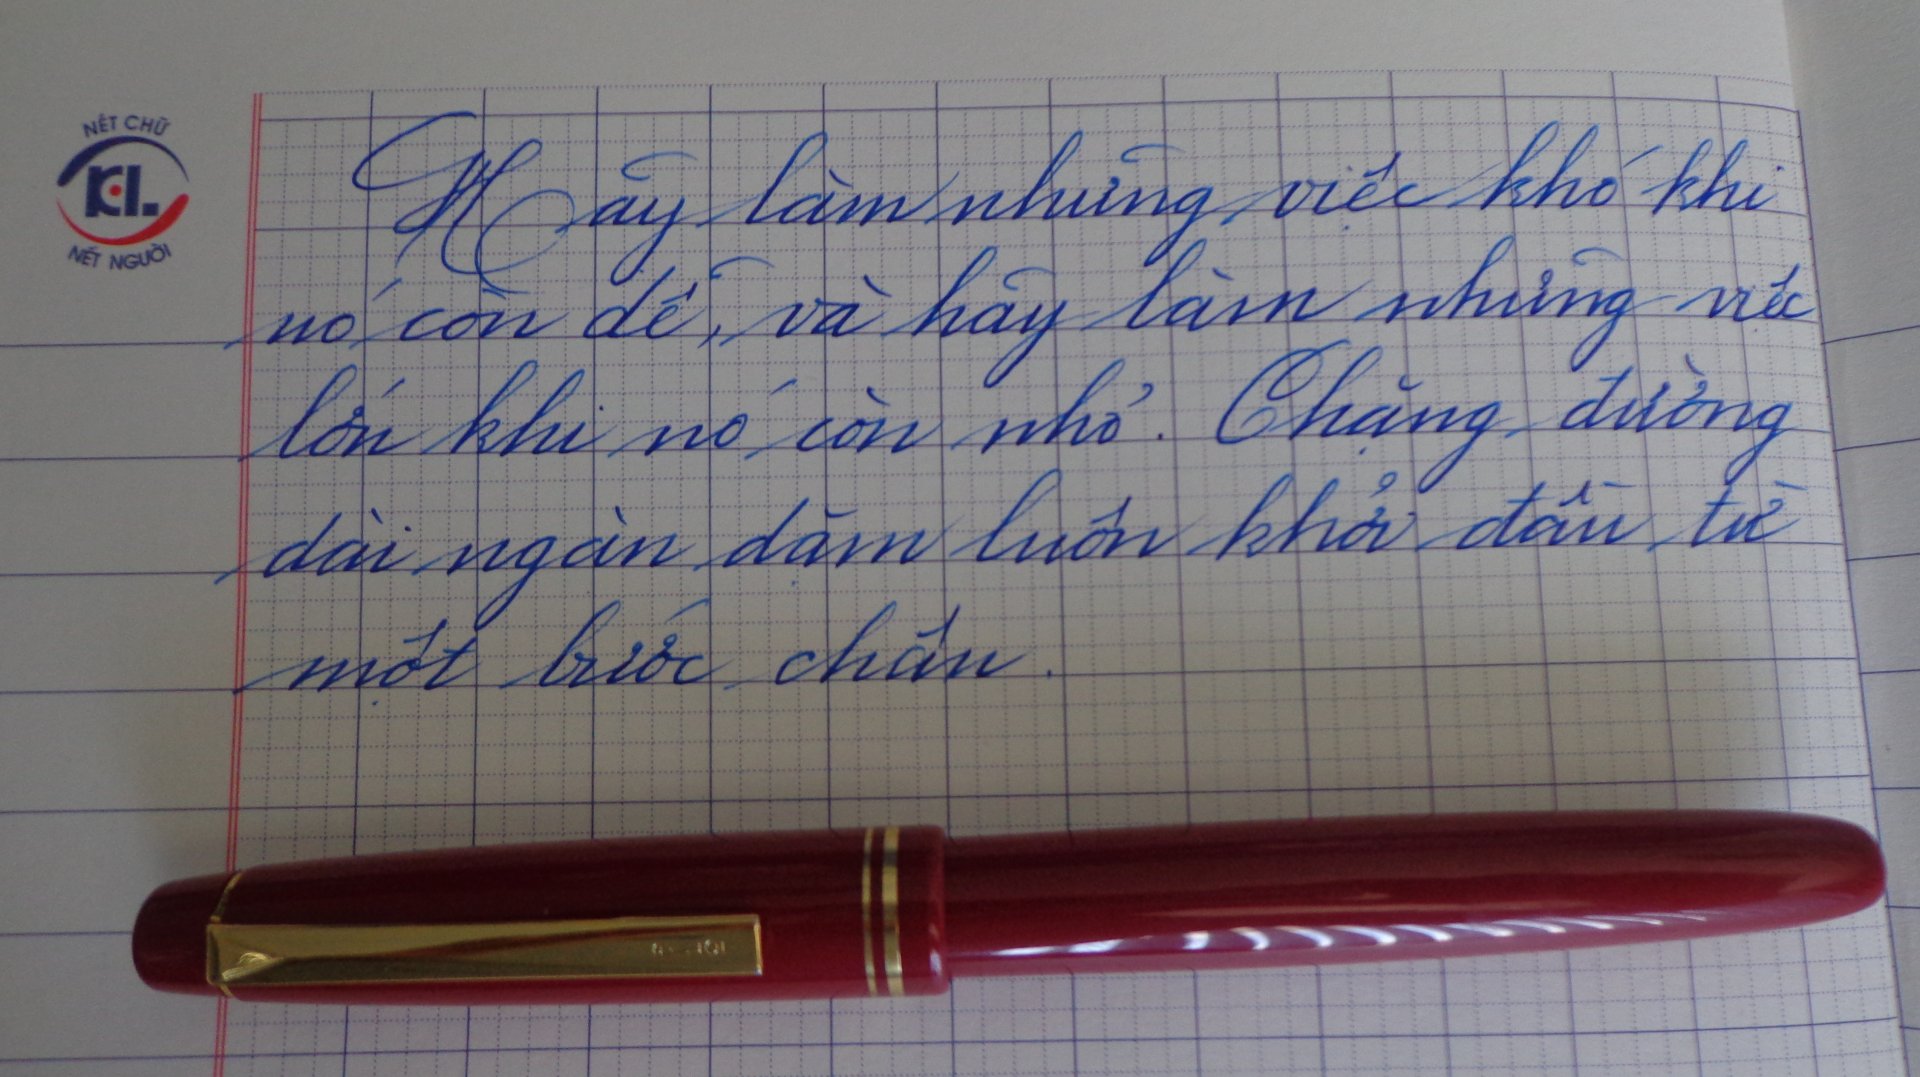 NÉT CHỮ
KL.
NẾT NGƯỜI
Hãy làm những việc khó khi
nó còn dễ, và hãy làm những việc
lớn khi nó còn nhỏ. Chặng đường
dài ngàn dặm luôn khởi đầu từ
một bước chân.